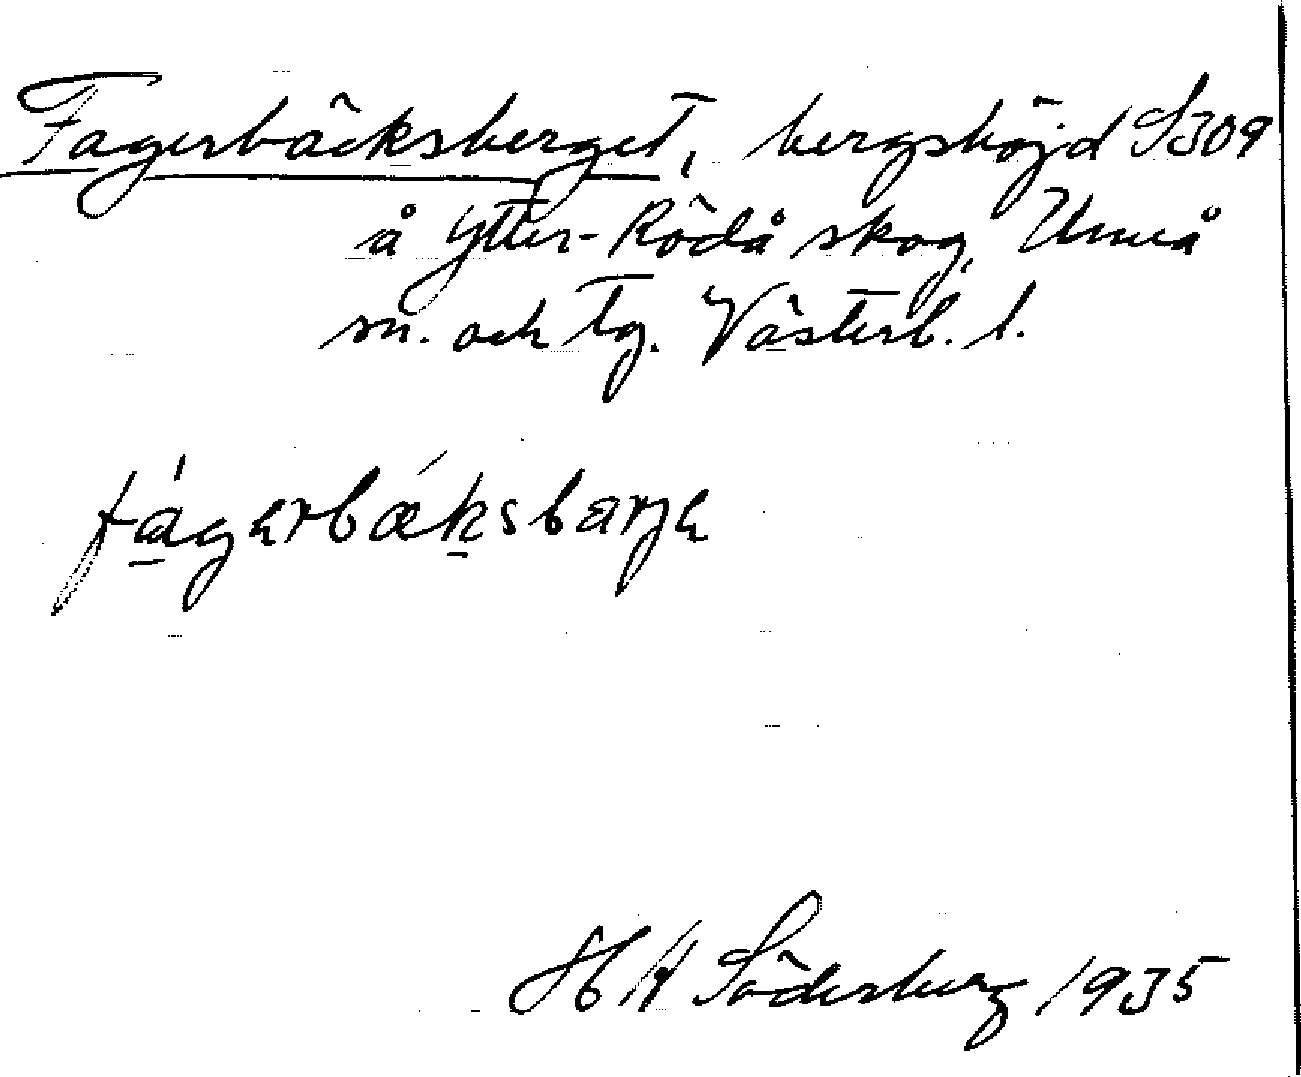 Fagerbäcksberget, bergshöjd S309
å Ytter-Rödå skog, Umeå
sn. och tg. Västerb. l.
fágərbǽksbarjə
H A Söderberg 1935